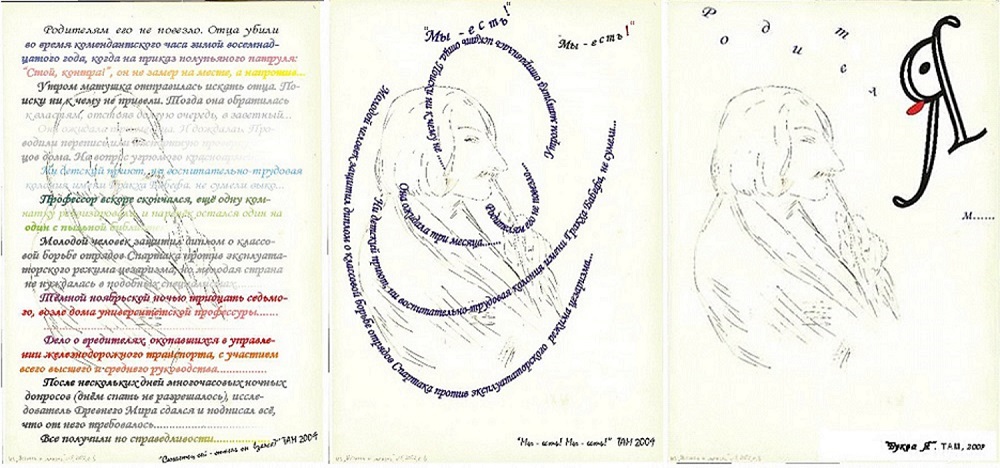 Родителям его не повезло. Отца убили
во время комендантского часа зимой восемнад-
цатого года, когда на приказ полупьяного патруля:
"Стой, контра!", он не замер на месте, а напротив...
Утром матушка отправилась искать отца. По-
иски ни к чему не привели. Тогда она обратилась
к властям, отстояв долгую очередь, в заветный...
Она ожидала три месяца. И дождалась. Про-
водили перепись
цов дома. На вопрос угрюмого
Ни детский приют, ни воспитательно-трудовая
колония имени Гракха Бабефа, не сумели
Профессор вскоре скончался, ещё одну ком-
натку реквизировали, и паренёк остался один на
один с пыльной
Молодой человек защитил диплом о классо-
вой борьбе отрядов Спартака против эксплуата-
торского режима цезаризма, но молодая страна
не нуждалась в подобных специалистах
Тёмной ноябрьской ночью тридцать седьмо-
го, возле дома университетской профессуры.......
Дело о вредителях, окопавшихся в управле-
нии железнодорожного транспорта, с участием
всего высшего и среднего руководства.................
После нескольких дней многочасовых ночных
допросов (днём спать не разрешалось), иссле-
дователь Древнего Мира сдался и подписал всё,
что от него требовалось....................
Все получили по справедливости.................
ТАМ 2009
"Мы - есть!"
Мы - есть!"
Родителям его не повезло...
Утром матушка отправилась искать отца. Поиски ни к чему не
Она ожидала три месяца.......
Ни детский приют, ни воспитательно-трудовая колония имени Гракха Бабефа, не сумели...
Молодой человек защитил диплом о классовой борьбе отрядов Спартака против эксплуататорского режима цезаризма...
"Мы - есть! Мы - есть!" ТАМ 2009
Родитея
Я
м......
"Буква Я". ТАМ, 2009